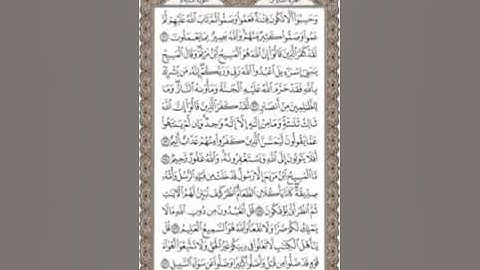 وَحَسِبُوٓا۟ أَلَّا تَكُونَ فِتْنَةٌ فَعَمُوا۟ وَصَمُّوا۟ ثُمَّ تَابَ ٱللَّهُ عَلَيْهِمْ ثُمَّ
عَمُوا۟ وَصَمُّوا۟ كَثِيرٌ مِّنْهُمْ وَٱللَّهُ بَصِيرٌۢ بِمَا يَعْمَلُونَ
لَقَدْ كَفَرَ ٱلَّذِينَ قَالُوٓا۟ إِنَّ ٱللَّهَ هُوَ ٱلْمَسِيحُ ٱبْنُ مَرْيَمَ وَقَالَ ٱلْمَسِيحُ
يَٰبَنِىٓ إِسْرَٰٓءِيلَ ٱعْبُدُوا۟ ٱللَّهَ رَبِّى وَرَبَّكُمْ إِنَّهُۥ مَن يُشْرِكْ
بِٱللَّهِ فَقَدْ حَرَّمَ ٱللَّهُ عَلَيْهِ ٱلْجَنَّةَ وَمَأْوَىٰهُ ٱلنَّارُ وَمَا
لِلظَّٰلِمِينَ مِنْ أَنصَارٍ لَّقَدْ كَفَرَ ٱلَّذِينَ قَالُوٓا۟ إِنَّ ٱللَّهَ
ثَالِثُ ثَلَٰثَةٍ وَمَا مِنْ إِلَٰهٍ إِلَّآ إِلَٰهٌ وَٰحِدٌ وَإِن لَّمْ يَنتَهُوا۟
عَمَّا يَقُولُونَ لَيَمَسَّنَّ ٱلَّذِينَ كَفَرُوا۟ مِنْهُمْ عَذَابٌ أَلِيمٌ
أَفَلَا يَتُوبُونَ إِلَى ٱللَّهِ وَيَسْتَغْفِرُونَهُۥ وَٱللَّهُ غَفُورٌ رَّحِيمٌ
مَّا ٱلْمَسِيحُ ٱبْنُ مَرْيَمَ إِلَّا رَسُولٌ قَدْ خَلَتْ مِن قَبْلِهِ ٱلرُّسُلُ وَأُمُّهُۥ
صِدِّيقَةٌ كَانَا يَأْكُلَانِ ٱلطَّعَامَ ٱنظُرْ كَيْفَ نُبَيِّنُ لَهُمُ ٱلْءَايَٰتِ
ثُمَّ ٱنظُرْ أَنَّىٰ يُؤْفَكُونَ قُلْ أَتَعْبُدُونَ مِن دُونِ ٱللَّهِ مَا لَا
يَمْلِكُ لَكُمْ ضَرًّا وَلَا نَفْعًا وَٱللَّهُ هُوَ ٱلسَّمِيعُ ٱلْعَلِيمُ قُلْ
يَٰٓأَهْلَ ٱلْكِتَٰبِ لَا تَغْلُوا۟ فِى دِينِكُمْ غَيْرَ ٱلْحَقِّ وَلَا تَتَّبِعُوٓا۟ أَهْوَآءَ
قَوْمٍ قَدْ ضَلُّوا۟ مِن قَبْلُ وَأَضَلُّوا۟ كَثِيرًا وَضَلُّوا۟ عَن سَوَآءِ ٱلسَّبِيلِ